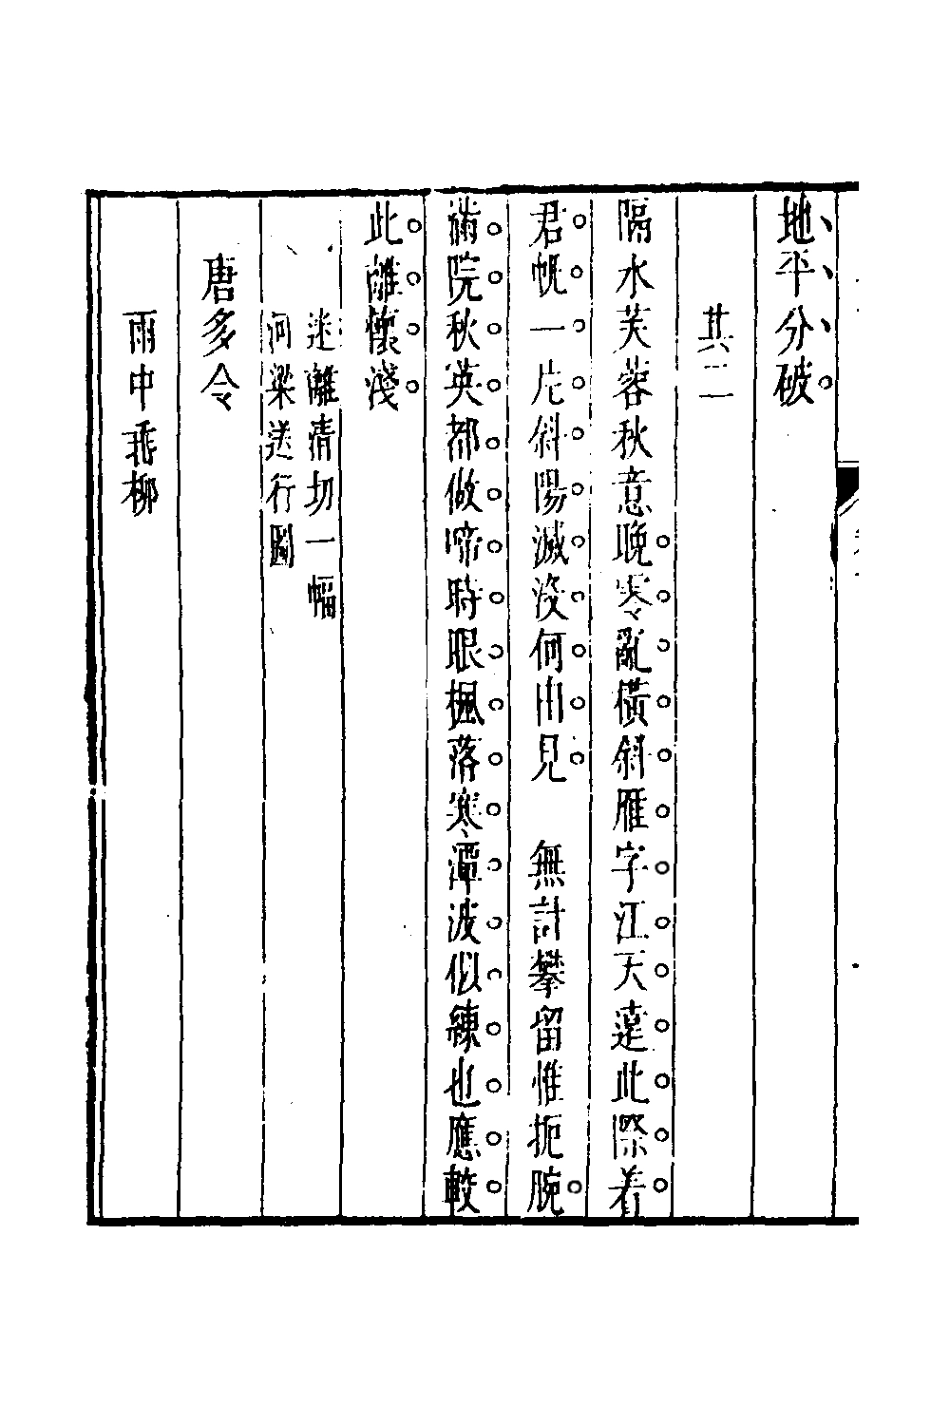 地平分破
其二
隔水芙蓉秋意晚零亂橫斜雁字江天遠此際看
君帆一片斜陽滅沒何由見　無計攀留惟扼腕
滿院秋英都做啼時眼楓落寒潭波似練也應較
此離懷淺
迷離清切一幅
河梁送行圖
唐多令
雨中垂柳